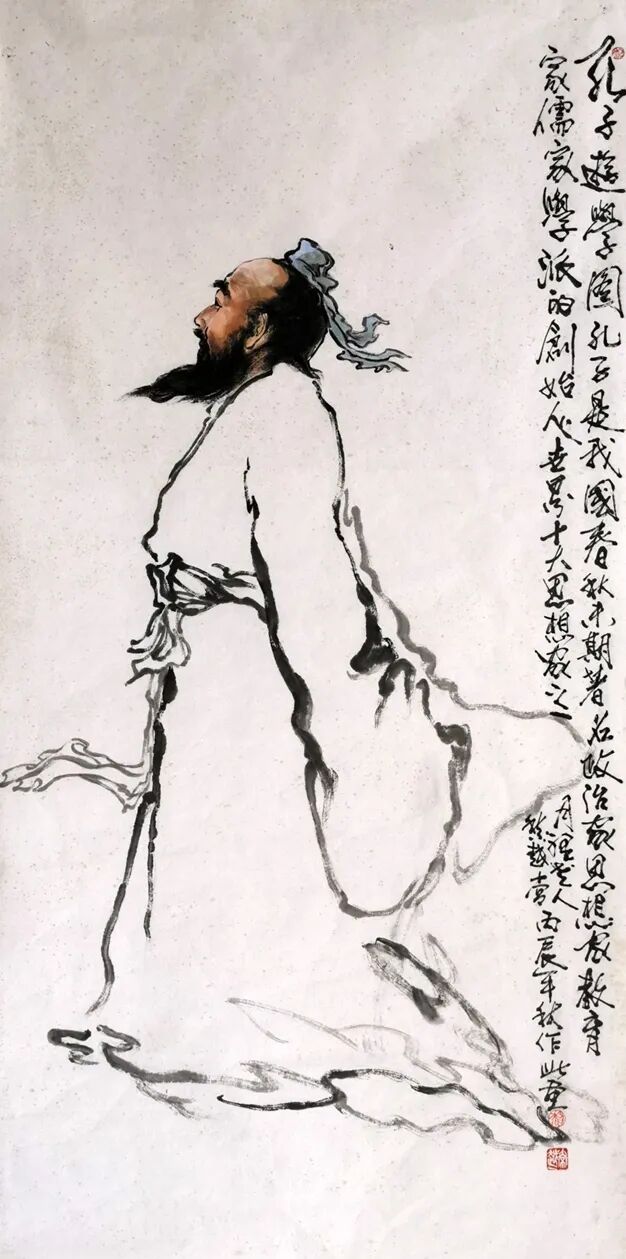 孔子遊學圖孔子是我國春秋末期著名政治家思想家教育
家儒家學派的創始人世界十大思想家之一
月老人
越常丙辰年秋作此画